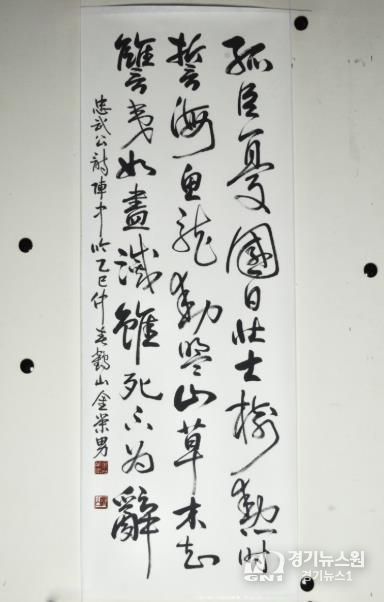 孤臣憂國日壯士樹勳時
誓海魚龍動盟山草木知
讐夷如盡滅雖死不為辭
忠武公詩陣中吟乙巳仲春鶴山金榮男
GN1
경기뉴스원
경기뉴스1